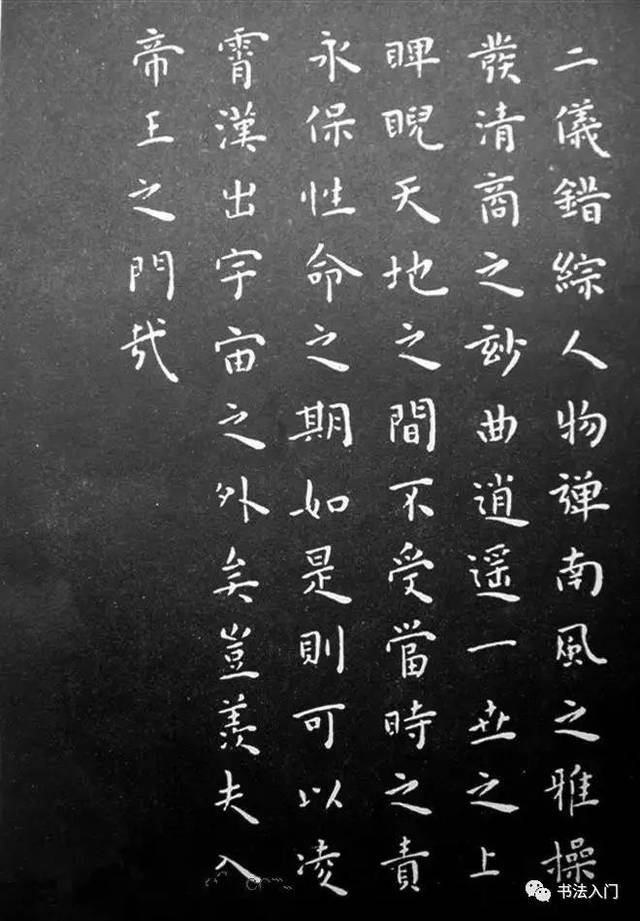 二儀錯綜人物彈南風之雅操
發清商之玅曲逍遥一世之上
睥睨天地之間不受當時之責
永保性命之期如是則可以凌
霄漢出宇宙之外矣豈羨夫入
帝王之門哉
书法入门